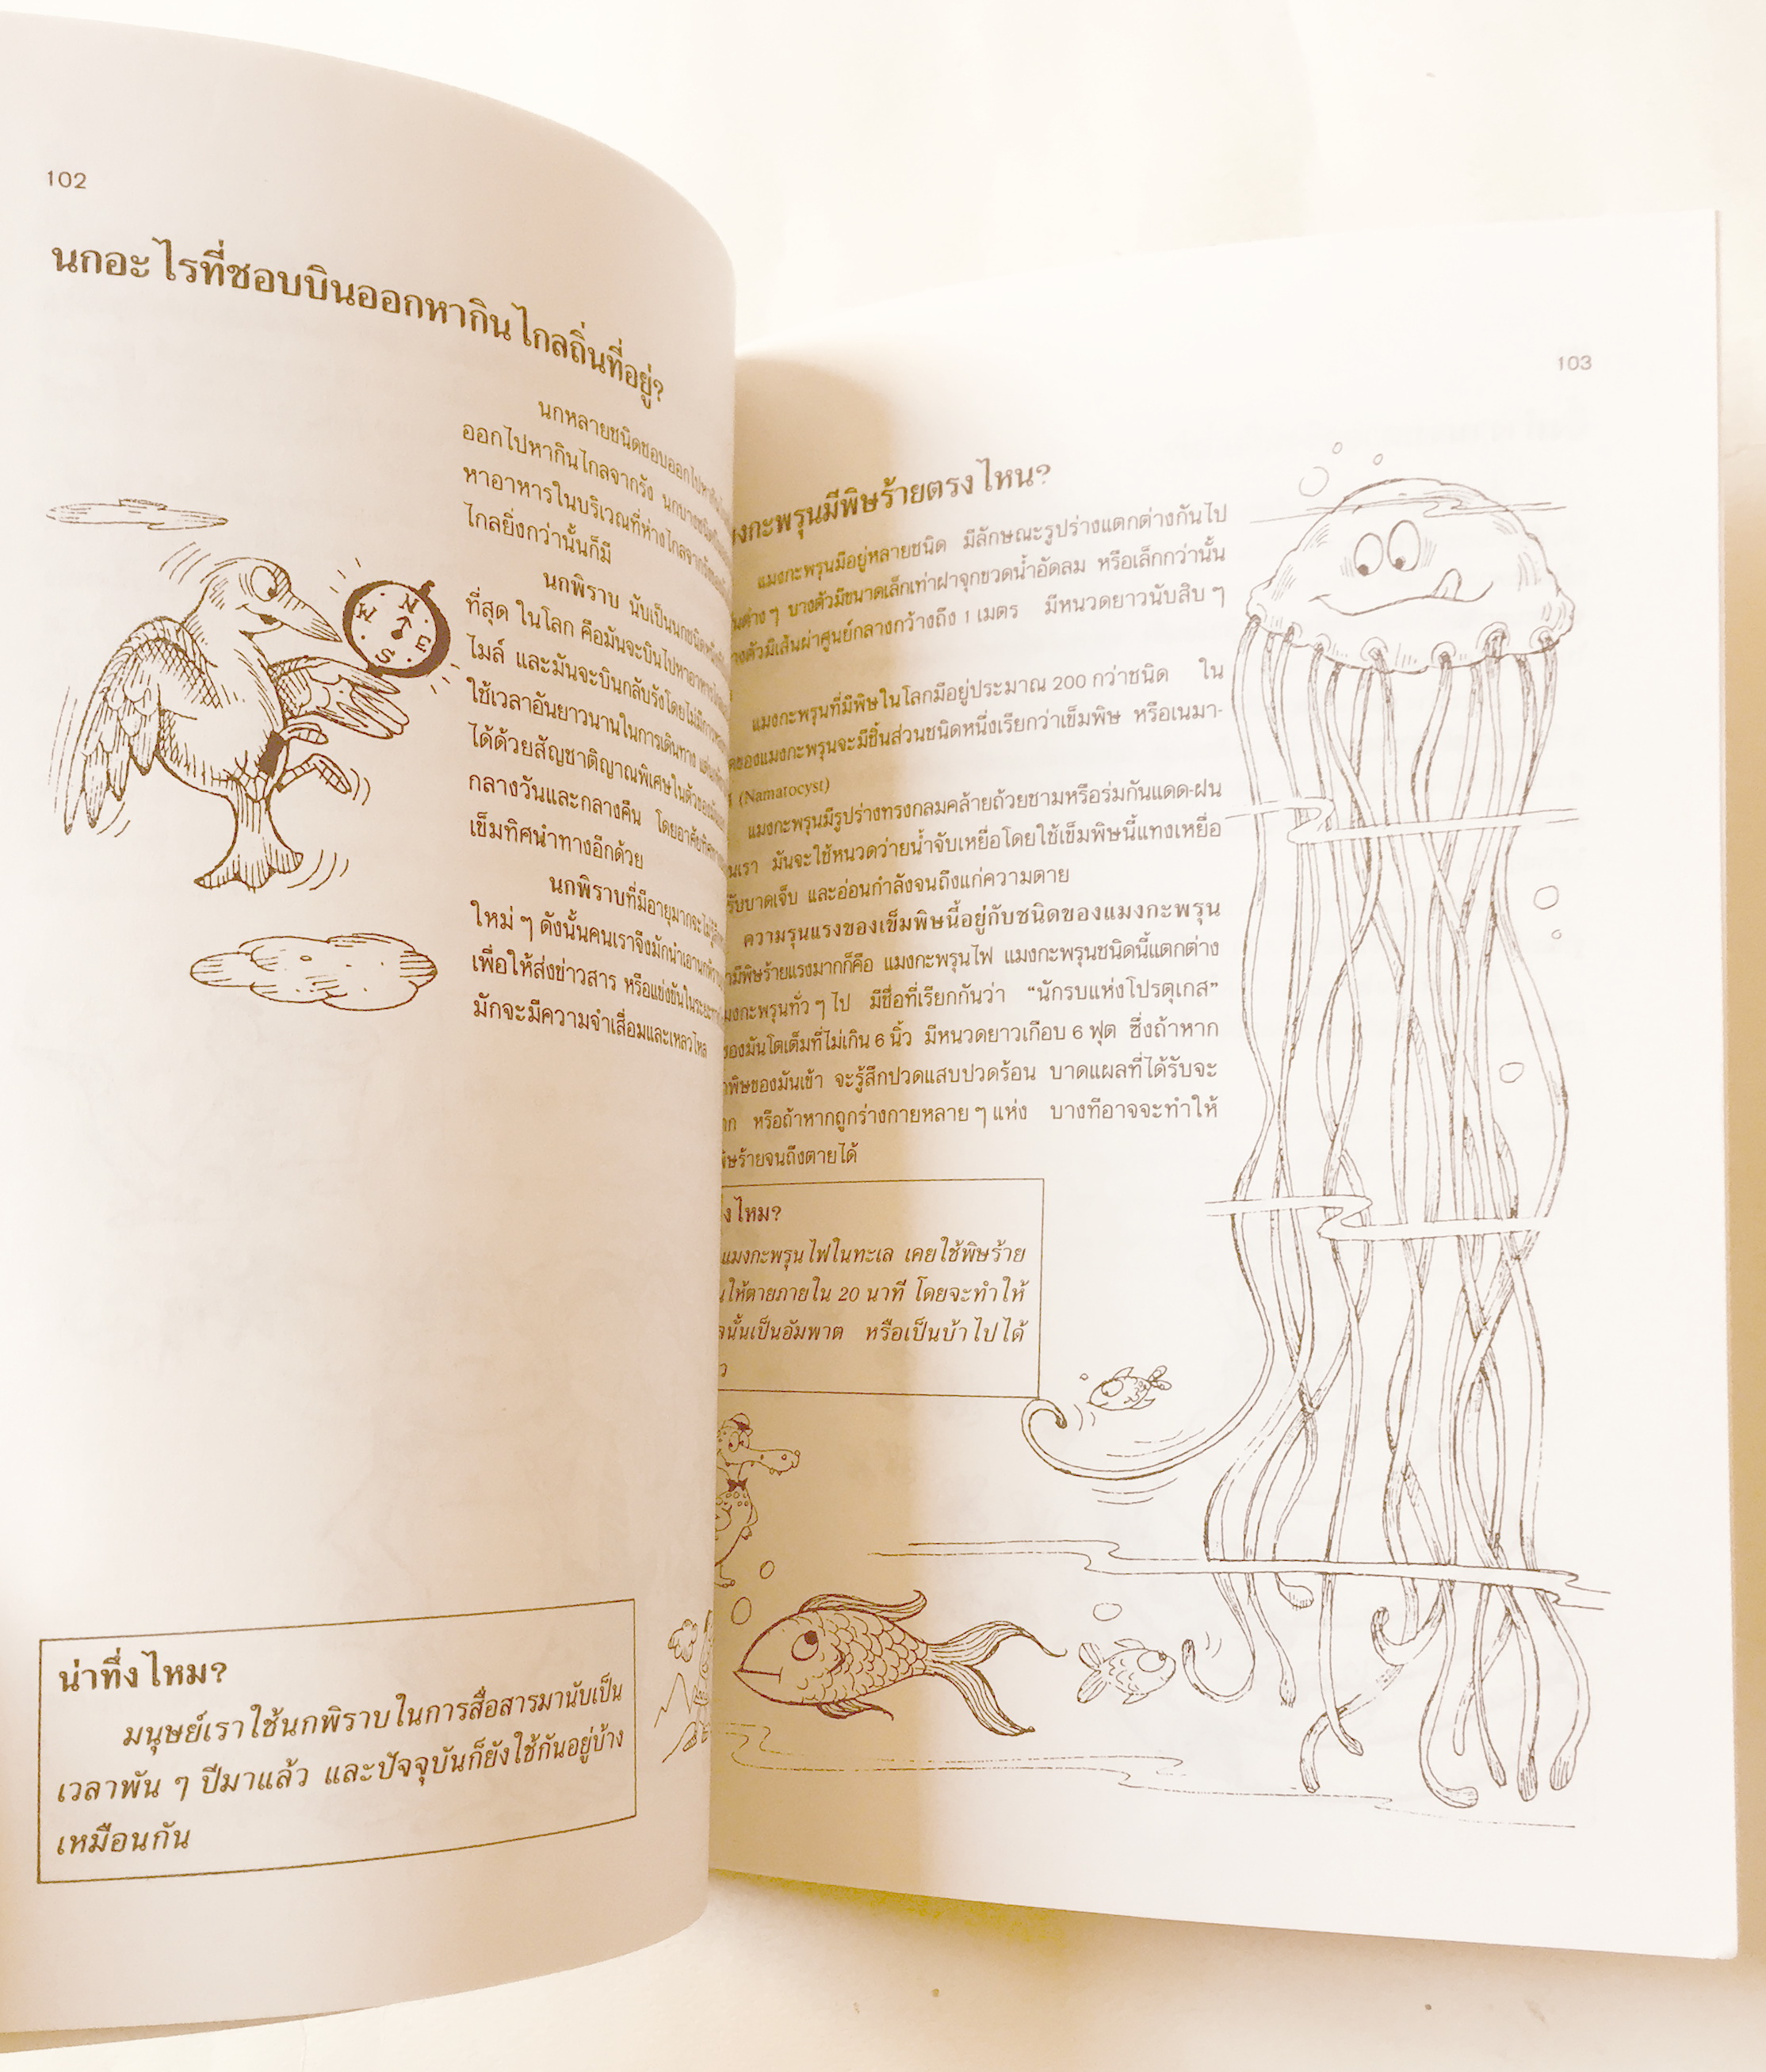 102
นกอะไรที่ชอบบินออกหากินไกลถิ่นที่อยู่?
นกหลายชนิดชอบออกไปหากิน
ออกไปหากินไกลจากรัง นกบางชนิด
หาอาหารในบริเวณที่ห่างไกลจากรัง
ไกลยิ่งกว่านั้นก็มี
นกพิราบ นับเป็นนกชนิดหนึ่งที่
ที่สุด ในโลก คือมันจะบินไปหาอาหาร
ไมล์ และมันจะบินกลับรังโดยไม่มีการ
ใช้เวลาอันยาวนานในการเดินทาง
ได้ด้วยสัญชาติญาณพิเศษในตัวของมัน
กลางวันและกลางคืน โดยอาศัย
เข็มทิศนำทางอีกด้วย
นกพิราบที่มีอายุมากจะไม่
ใหม่ ๆ ดังนั้นคนเราจึงมักนำเอานกพิราบ
เพื่อให้ส่งข่าวสาร หรือแข่งขันในระยะ
มักจะมีความจำเสื่อมและเหลวไหล
N
E
S
W
น่าทึ่งไหม?
มนุษย์เราใช้นกพิราบในการสื่อสารมานับเป็น
เวลาพัน ๆ ปีมาแล้ว และปัจจุบันก็ยังใช้กันอยู่บ้าง
เหมือนกัน
103
งกะพรุนมีพิษร้ายตรงไหน?
แมงกะพรุนมีอยู่หลายชนิด มีลักษณะรูปร่างแตกต่างกันไป
ต่าง ๆ บางตัวมีขนาดเล็กเท่าฝาจุกขวดน้ำอัดลม หรือเล็กกว่านั้น
างตัวมีเส้นผ่าศูนย์กลางกว้างถึง 1 เมตร มีหนวดยาวนับสิบ ๆ
แมงกะพรุนที่มีพิษในโลกมีอยู่ประมาณ 200 กว่าชนิด ใน
ของแมงกะพรุนจะมีชิ้นส่วนชนิดหนึ่งเรียกว่าเข็มพิษ หรือเนมา-
(Namatocyst)
แมงกะพรุนมีรูปร่างทรงกลมคล้ายถ้วยชามหรือร่มกันแดด-ฝน
นเรา มันจะใช้หนวดว่ายน้ำจับเหยื่อโดยใช้เข็มพิษนี้แทงเหยื่อ
รับบาดเจ็บ และอ่อนกำลังจนถึงแก่ความตาย
ความรุนแรงของเข็มพิษนี้อยู่กับชนิดของแมงกะพรุน
มีพิษร้ายแรงมากก็คือ แมงกะพรุนไฟ แมงกะพรุนชนิดนี้แตกต่าง
มงกะพรุนทั่ว ๆ ไป มีชื่อที่เรียกกันว่า “นักรบแห่งโปรตุเกส”
ของมันโตเต็มที่ไม่เกิน 6 นิ้ว มีหนวดยาวเกือบ 6 ฟุต ซึ่งถ้าหาก
พิษของมันเข้า จะรู้สึกปวดแสบปวดร้อน บาดแผลที่ได้รับจะ
าก หรือถ้าหากถูกร่างกายหลาย ๆ แห่ง บางทีอาจจะทำให้
พิษร้ายจนถึงตายได้
งไหม?
แมงกะพรุนไฟในทะเล เคยใช้พิษร้าย
ให้ตายภายใน 20 นาที โดยจะทำให้
นั้นเป็นอัมพาต หรือเป็นบ้าไปได้